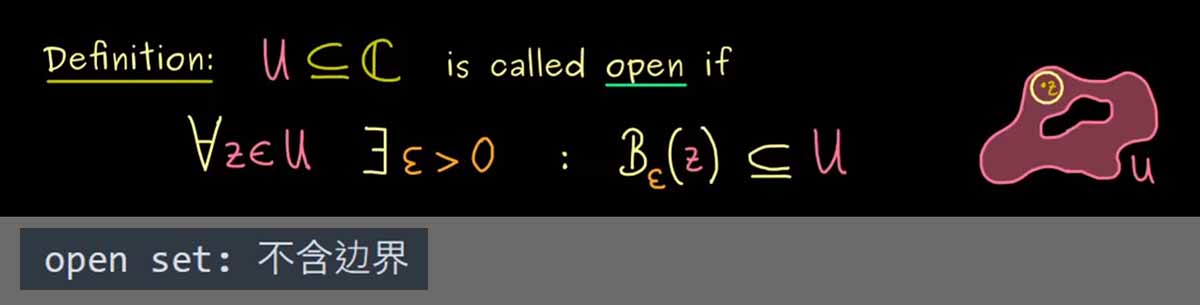 Definition: U ⊆ ℂ is called open if
∀z∈U ∃ε>0 : Bε(z) ⊆ U
z
U
open set: 不含边界